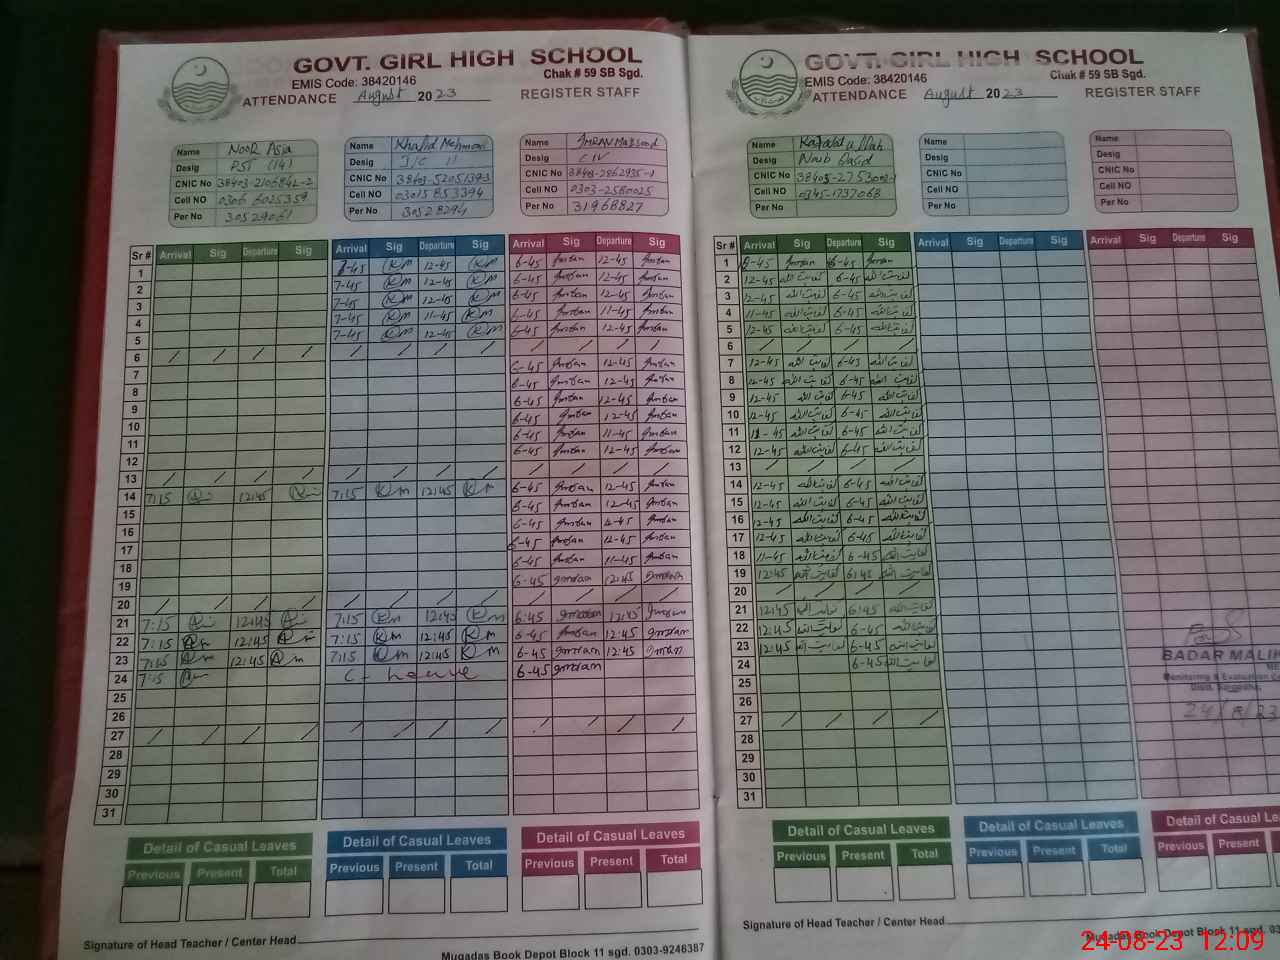 GOVT. GIRL HIGH SCHOOL
EMIS Code: 38420146
Chak # 59 SB Sgd.
ATTENDANCE August 2023 REGISTER STAFF
Name Noor Asia
Desig PST (14)
CNIC No 38403-2106842-2
Cell NO 0306 6025359
Per No 30529061
Name Khalid Mehmood
Desig J/C 11
CNIC No
Cell NO 03015853394
Per No 30528294
Name Imran Maqsood
Desig C IV
CNIC No 38403-2862935-1
Cell NO 0303-2580025
Per No 31968827
Sr # Arrival Sig Departure Sig Arrival Sig Departure Sig Arrival Sig Departure Sig
1 6-45 (K)m 12-45 (K)m 6-45 Imran 12-45 Imran
2 7-45 (K)m 12-45 (K)m 6-45 Imran 12-45 Imran
3 7-45 (K)m 12-45 (K)m 6-45 Imran 12-45 Imran
4 7-45 (K)m 11-45 (K)m 6-45 Imran 11-45 Imran
5 7-45 (K)m 12-45 (K)m 6-45 Imran 12-45 Imran
6 / / / / / / / / / / / /
7 6-45 Imran 12-45 Imran
8 6-45 Imran 12-45 Imran
9 6-45 Imran 12-45 Imran
10 6-45 Imran 12-45 Imran
11 6-45 Imran 11-45 Imran
12 6-45 Imran 12-45 Imran
13 / / / / / / / / / / / /
14 7:15 12:45 7:15 Km 12:45 Km 6-45 Imran 12-45 Imran
15 6-45 Imran 12-45 Imran
16 6-45 Imran 12-45 Imran
17 6-45 Imran 12-45 Imran
18 6-45 Imran 11-45 Imran
19 6-45 Imran 12:45 Imran
20 / / / / / / / / / / / /
21 7:15 12:45 7:15 (K)m 12:45 (K)m 6:45 Imran 12:45 Imran
22 7:15 12:45 7:15 (K)m 12:45 (K)m 6-45 Imran 12:45 Imran
23 7:15 12:45 7:15 (K)m 12:45 (K)m 6-45 Imran 12:45 Imran
24 7:15 C-Leave 6-45 Imran
25
26
27 / / / / / / / / / / / /
28
29
30
31
Detail of Casual Leaves Detail of Casual Leaves Detail of Casual Leaves
Previous Present Total Previous Present Total Previous Present Total
Signature of Head Teacher / Center Head
Muqadas Book Depot Block 11 sgd. 0303-9246387
GOVT. GIRL HIGH SCHOOL
EMIS Code: 38420146
Chak # 59 SB Sgd.
ATTENDANCE August 2023 REGISTER STAFF
Name Kafayat ullah
Desig Naib Qasid
CNIC No 38405-2753002-1
Cell NO 0345-1737068
Per No
Name
Desig
CNIC No
Cell NO
Per No
Name
Desig
CNIC No
Cell NO
Per No
Sr # Arrival Sig Departure Sig Arrival Sig Departure Sig Arrival Sig Departure Sig
1 6-45 Imran 6-45 Imran
2 12-45 کفایت اللہ 6-45 کفایت اللہ
3 12-45 کفایت اللہ 6-45 کفایت اللہ
4 11-45 کفایت اللہ 6-45 کفایت اللہ
5 12-45 کفایت اللہ 6-45 کفایت اللہ
6 / / / /
7 12-45 کفایت اللہ 6-45 کفایت اللہ
8 12-45 کفایت اللہ 6-45 کفایت اللہ
9 12-45 کفایت اللہ 6-45 کفایت اللہ
10 12-45 کفایت اللہ 6-45 کفایت اللہ
11 11-45 کفایت اللہ 6-45 کفایت اللہ
12 12-45 کفایت اللہ 6-45 کفایت اللہ
13 / / / /
14 12-45 کفایت اللہ 6-45 کفایت اللہ
15 12-45 کفایت اللہ 6-45 کفایت اللہ
16 12-45 کفایت اللہ 6-45 کفایت اللہ
17 12-45 کفایت اللہ 6-45 کفایت اللہ
18 11-45 کفایت اللہ 6-45 کفایت اللہ
19 12:45 کفایت اللہ 6:45 کفایت اللہ
20 / / / /
21 12:45 کفایت اللہ 6:45 کفایت اللہ
22 12:45 کفایت اللہ 6-45 کفایت اللہ
23 12:45 کفایت اللہ 6-45 کفایت اللہ
24 6-45 کفایت اللہ
25
26
27 / / / /
28
29
30
31
BADAR MALIK
Monitoring & Evaluation
Distt. Sargodha
24/8/23
Detail of Casual Leaves Detail of Casual Leaves Detail of Casual
Previous Present Total Previous Present Total Previous Present
Signature of Head Teacher / Center Head
Muqadas Book Depot Block 11 sgd.
24-08-23 12:09